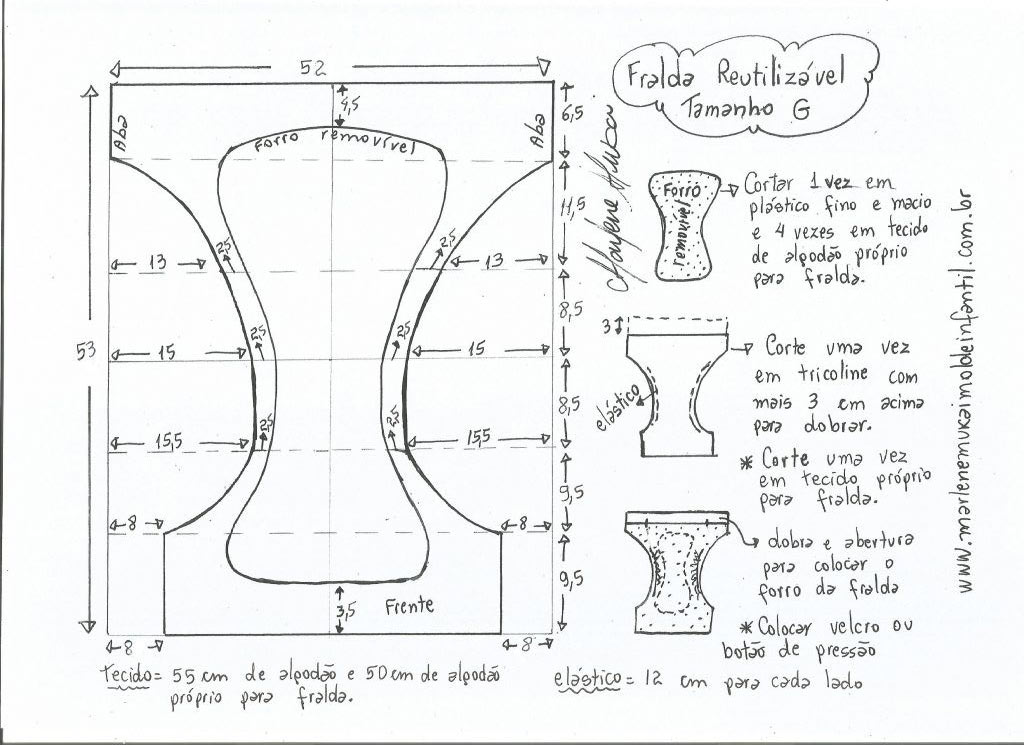 Fralda Reutilizável
Tamanho G
52
4,5
6,5
Aba
Aba
Forro removível
11,5
2,5
2,5
13
13
8,5
2,5
2,5
53
15
15
8,5
2,5
2,5
15,5
15,5
9,5
8
8
9,5
3,5
Frente
8
8
tecido = 55 cm de algodão e 50 cm de algodão
próprio para fralda.
elástico = 12 cm para cada lado
Forro
removível
Cortar 1 vez em
plástico fino e macio
e 4 vezes em tecido
de algodão próprio
para fralda.
3
elástico
Corte uma vez
em tricoline com
mais 3 cm acima
para dobrar.
* Corte uma vez
em tecido próprio
para fralda.
dobra e abertura
para colocar o
forro da fralda
* Colocar velcro ou
botão de pressão
www.moldesdicasmoda.com